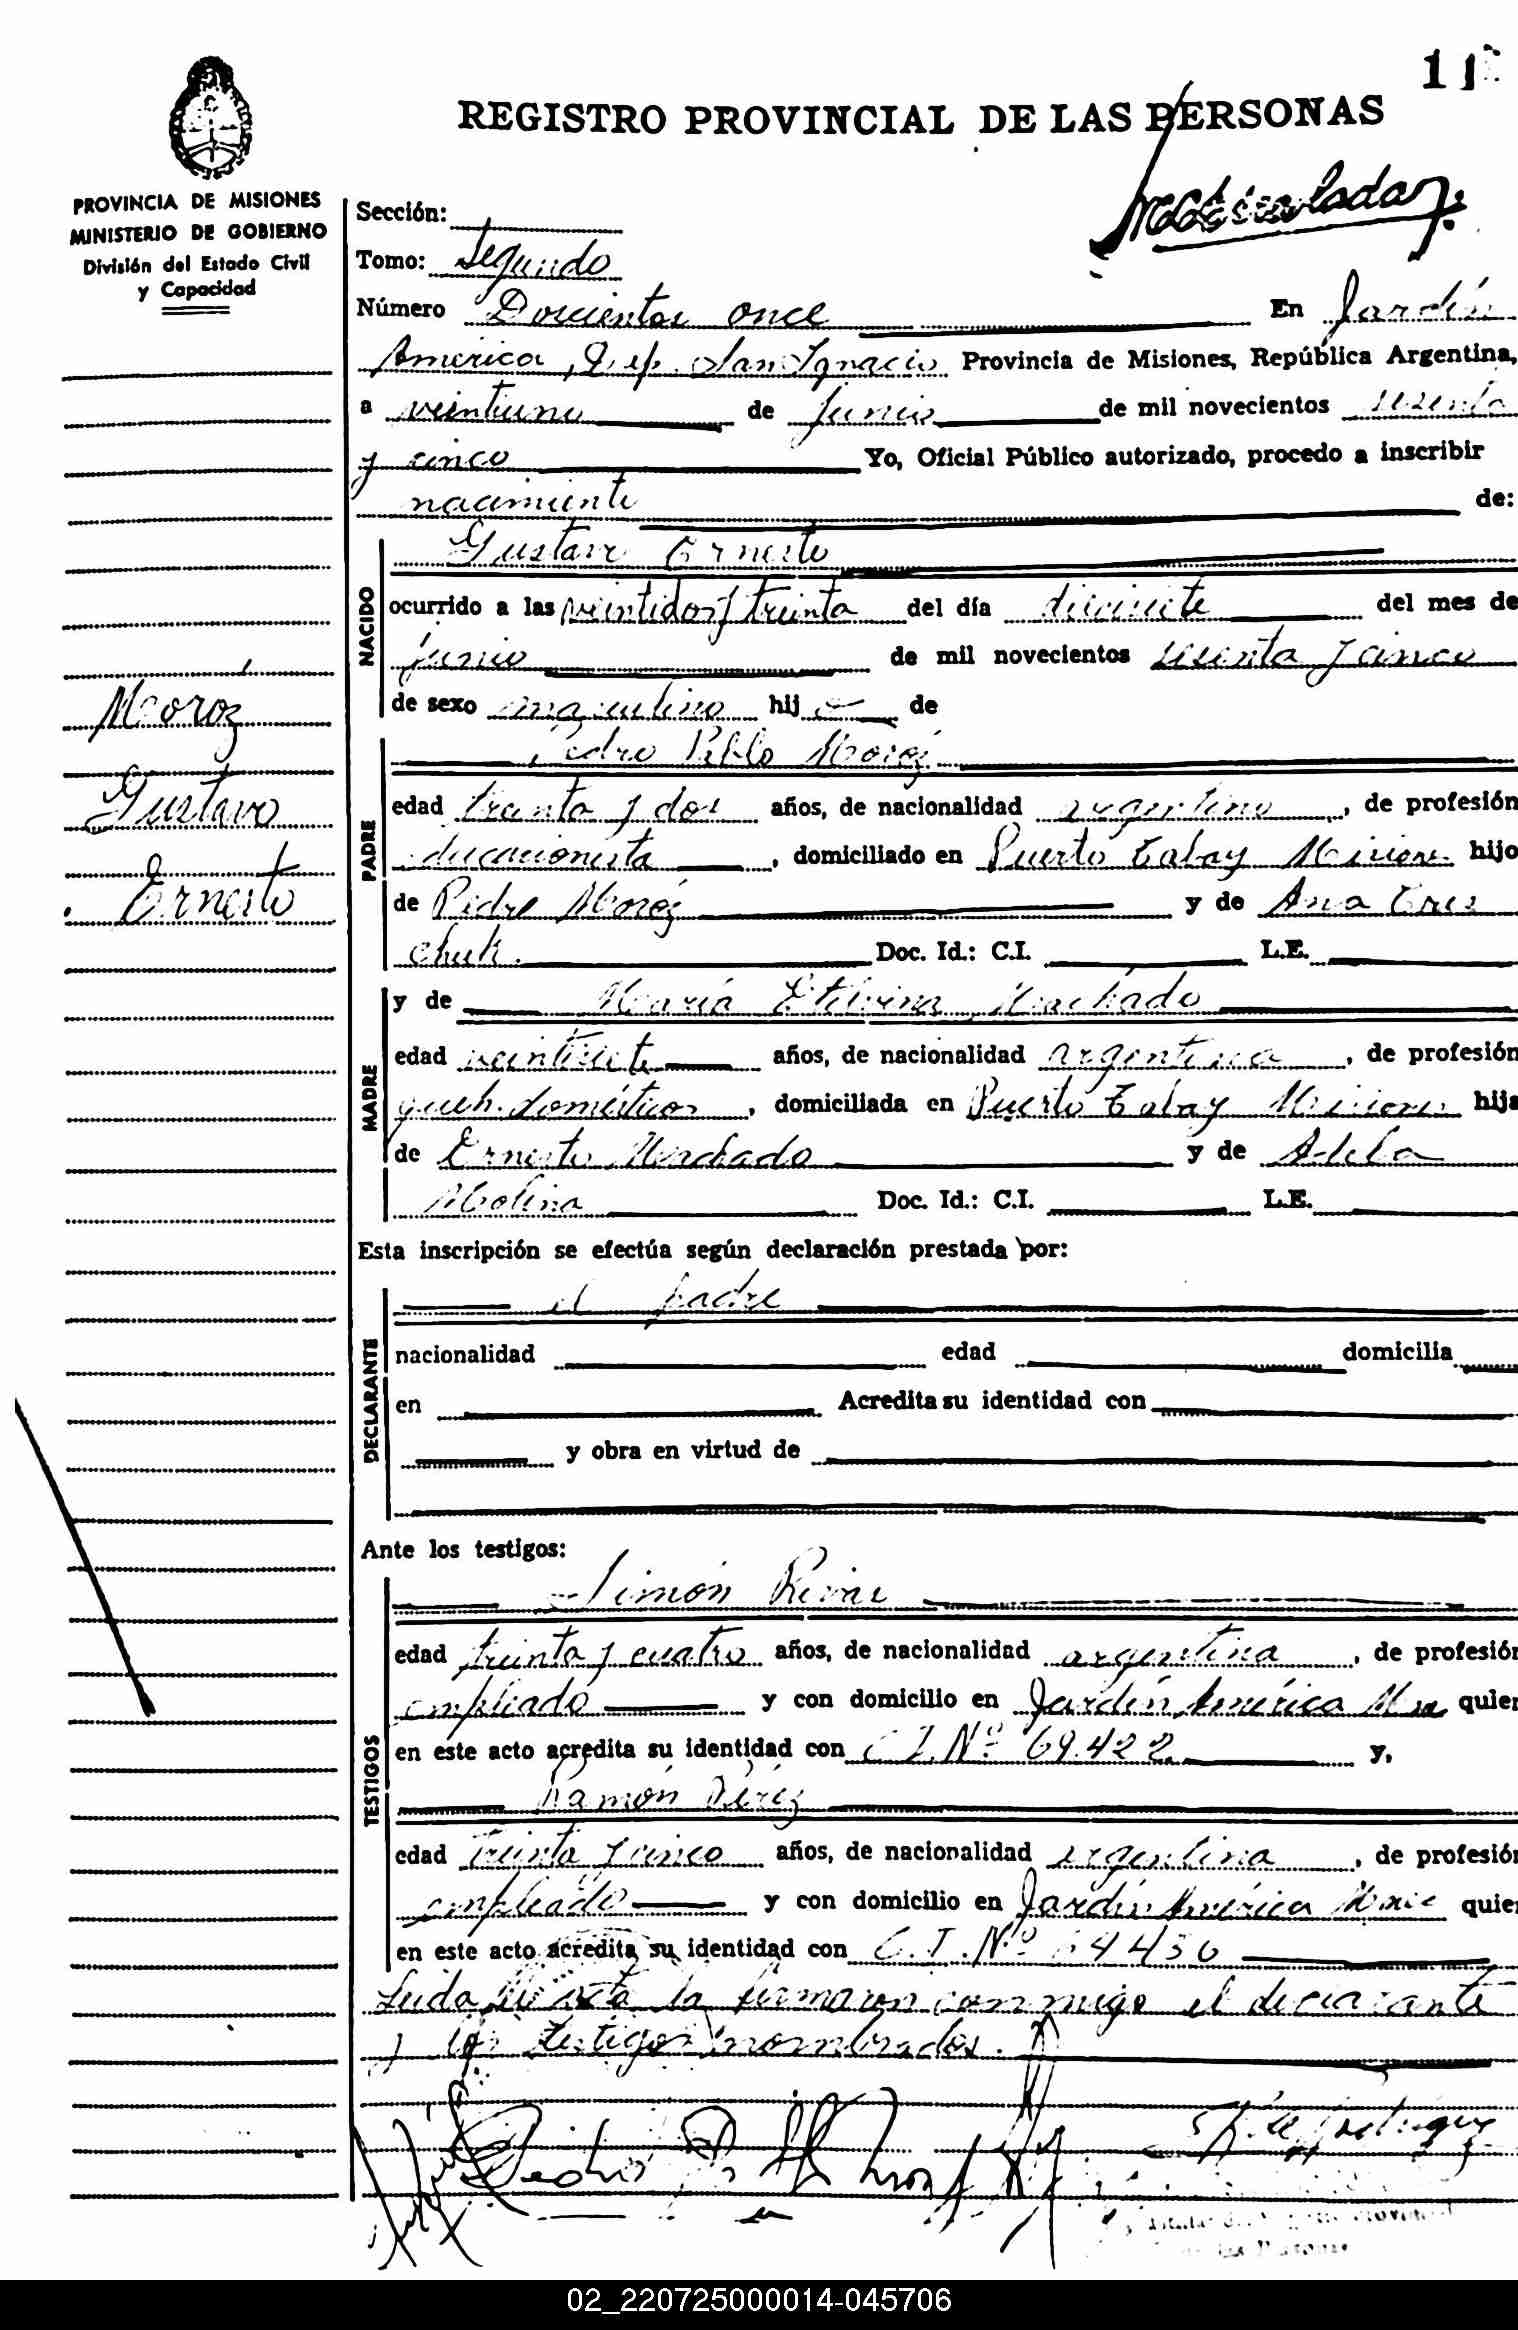 11
REGISTRO PROVINCIAL DE LAS PERSONAS
PROVINCIA DE MISIONES
MINISTERIO DE GOBIERNO
División del Estado Civil
y Capacidad
Sección:
Tomo: Segundo
Número Doscientos once En Jardín
América, Dep. San Ignacio Provincia de Misiones, República Argentina,
a veintiuno de junio de mil novecientos sesenta
y cinco Yo, Oficial Público autorizado, procedo a inscribir
nacimiento de:
Gustavo Ernesto
NACIDO
ocurrido a las veintidos y treinta del día diecisiete del mes de
junio de mil novecientos sesenta y cinco
de sexo masculino hijo de
Moroz
Gustavo
Ernesto
Pedro Pablo Moroz
PADRE
edad treinta y dos años, de nacionalidad argentino, de profesión
educacionista, domiciliado en Puerto Tabay Misiones hijo
de Pedro Moroz y de Ana
chuk. Doc. Id.: C.I. L.E.
y de María Etelvina Machado
MADRE
edad veintisiete años, de nacionalidad argentina, de profesión
queh. domésticos, domiciliada en Puerto Tabay Misiones hija
de Ernesto Machado y de Adela
Molina Doc. Id.: C.I. L.E.
Esta inscripción se efectúa según declaración prestada por:
el padre
DECLARANTE
nacionalidad edad domicilia
en Acredita su identidad con
y obra en virtud de
Ante los testigos:
Simón Rivas
TESTIGOS
edad treinta y cuatro años, de nacionalidad argentina, de profesión
empleado y con domicilio en Jardín América quien
en este acto acredita su identidad con C.I. Nº 69.422 y,
Ramón Pérez
edad treinta y cinco años, de nacionalidad argentina, de profesión
empleado y con domicilio en Jardín América quien
en este acto acredita su identidad con C.I. Nº
Leida el acta la firmaron conmigo el declarante
y los testigos nombrados.
02_220725000014-045706